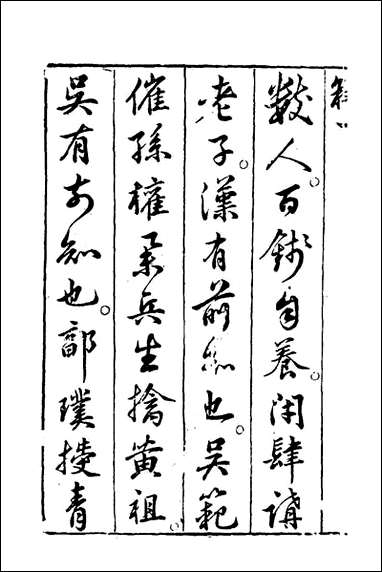 數人。百錢自養。閉肆講
老子。漢有前知也。吳範
催孫權
兵生擒黃祖。
吳有前知也。郭璞授青